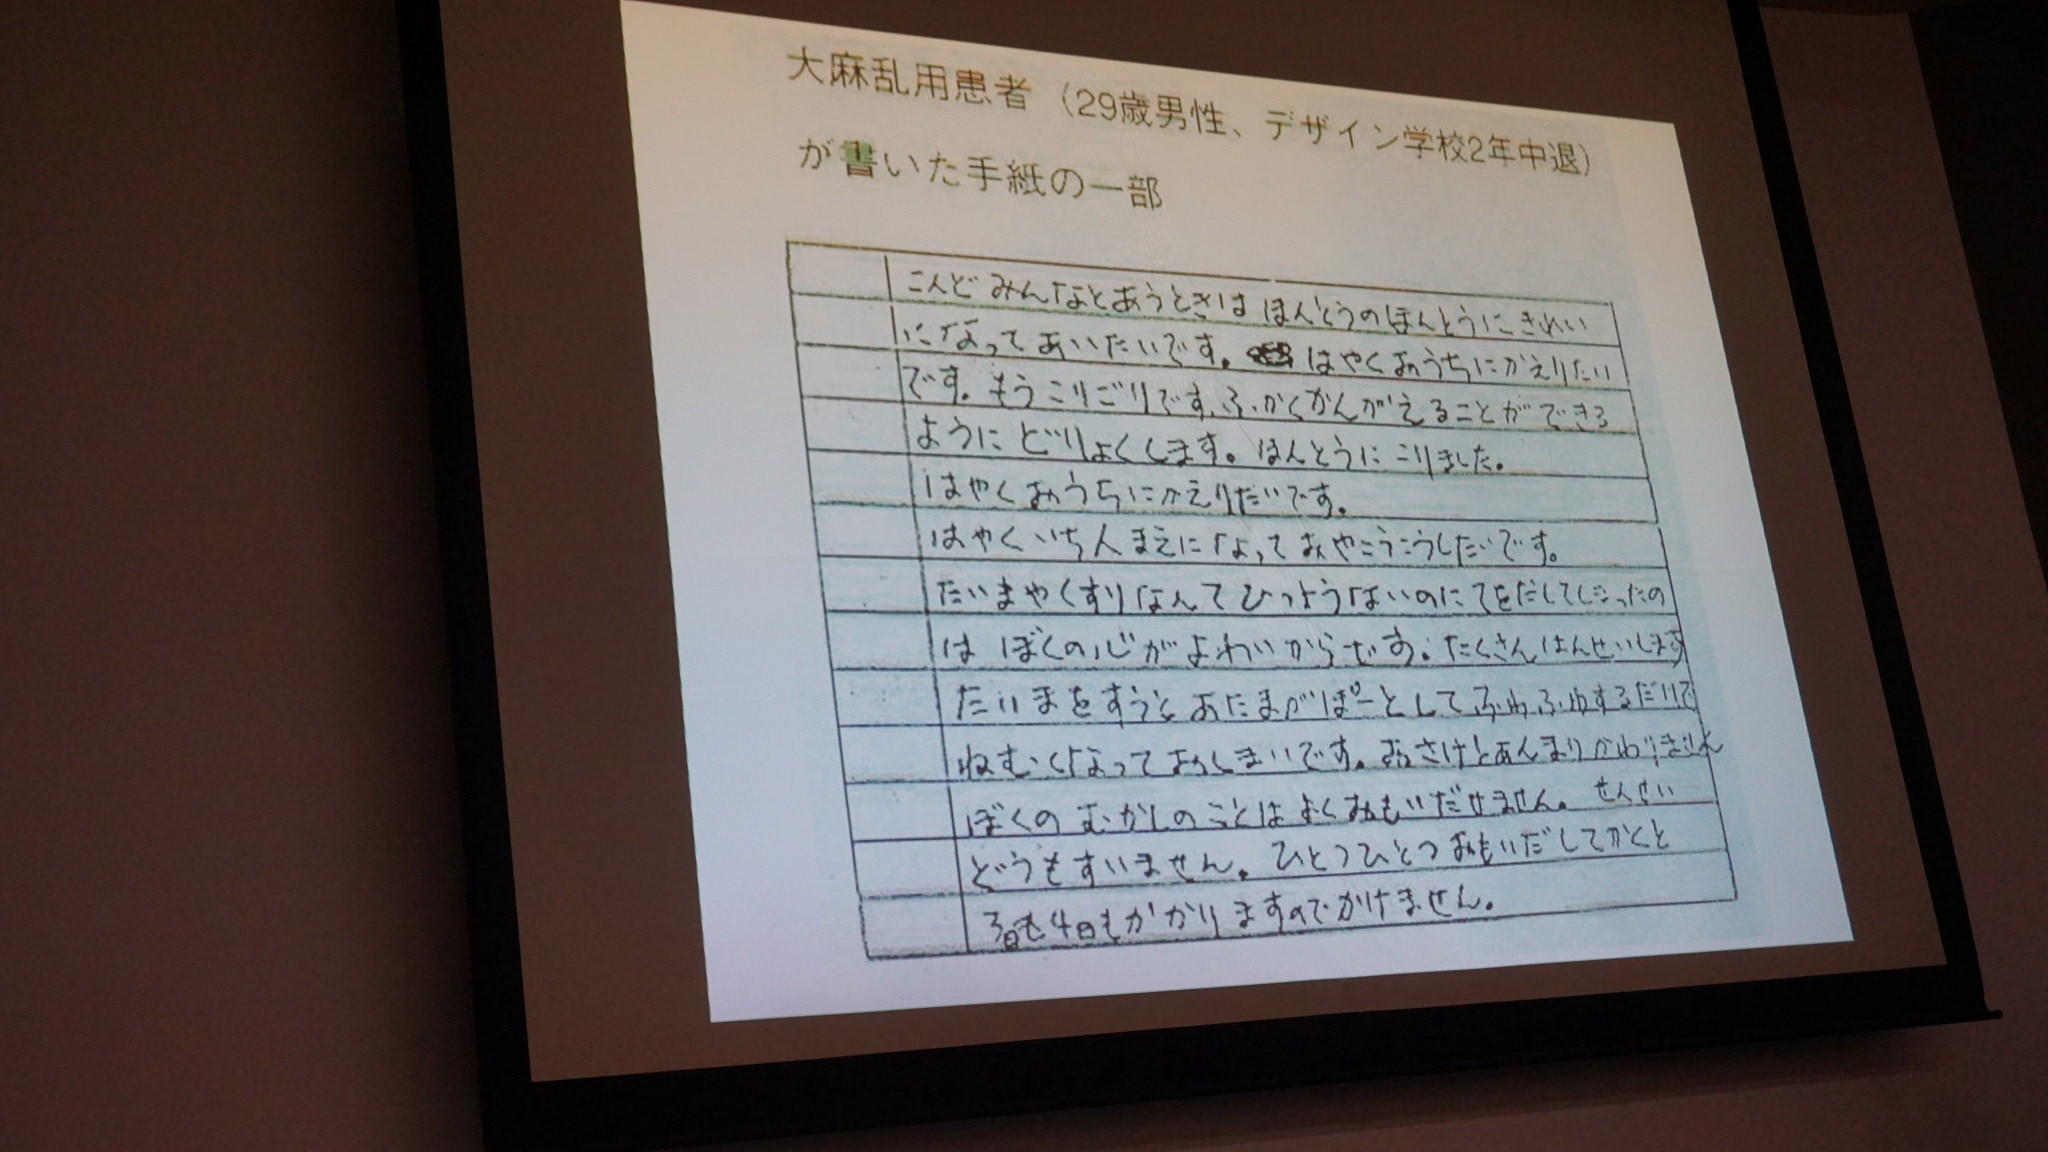 大麻乱用患者（29歳男性、デザイン学校2年中退）
が書いた手紙の一部
こんど みんなとあうときは ほんとうのほんとうに きれい
になって あいたいです。 はやくおうちにかえりたい
です。もうこりごりです。ふかくかんがえることができる
ように どりょくします。ほんとうに こりました。
はやくおうちにかえりたいです。
はやく いち人まえになって おやこうこうしたいです。
たいまやくすりなんて ひつようないのに てをだしてしまったの
は ぼくの心がよわいからです。たくさんはんせいします
たいまをすうと あたまがぼーとして ふわふわするだけで
ねむくなって おしまいです。おさけとあんまりかわりません
ぼくの むかしのことは よくおもいだせません。 せんせい
どうもすいません。 ひとつひとつ おもいだしてかくと
3日も4日もかかりますのでかけません。